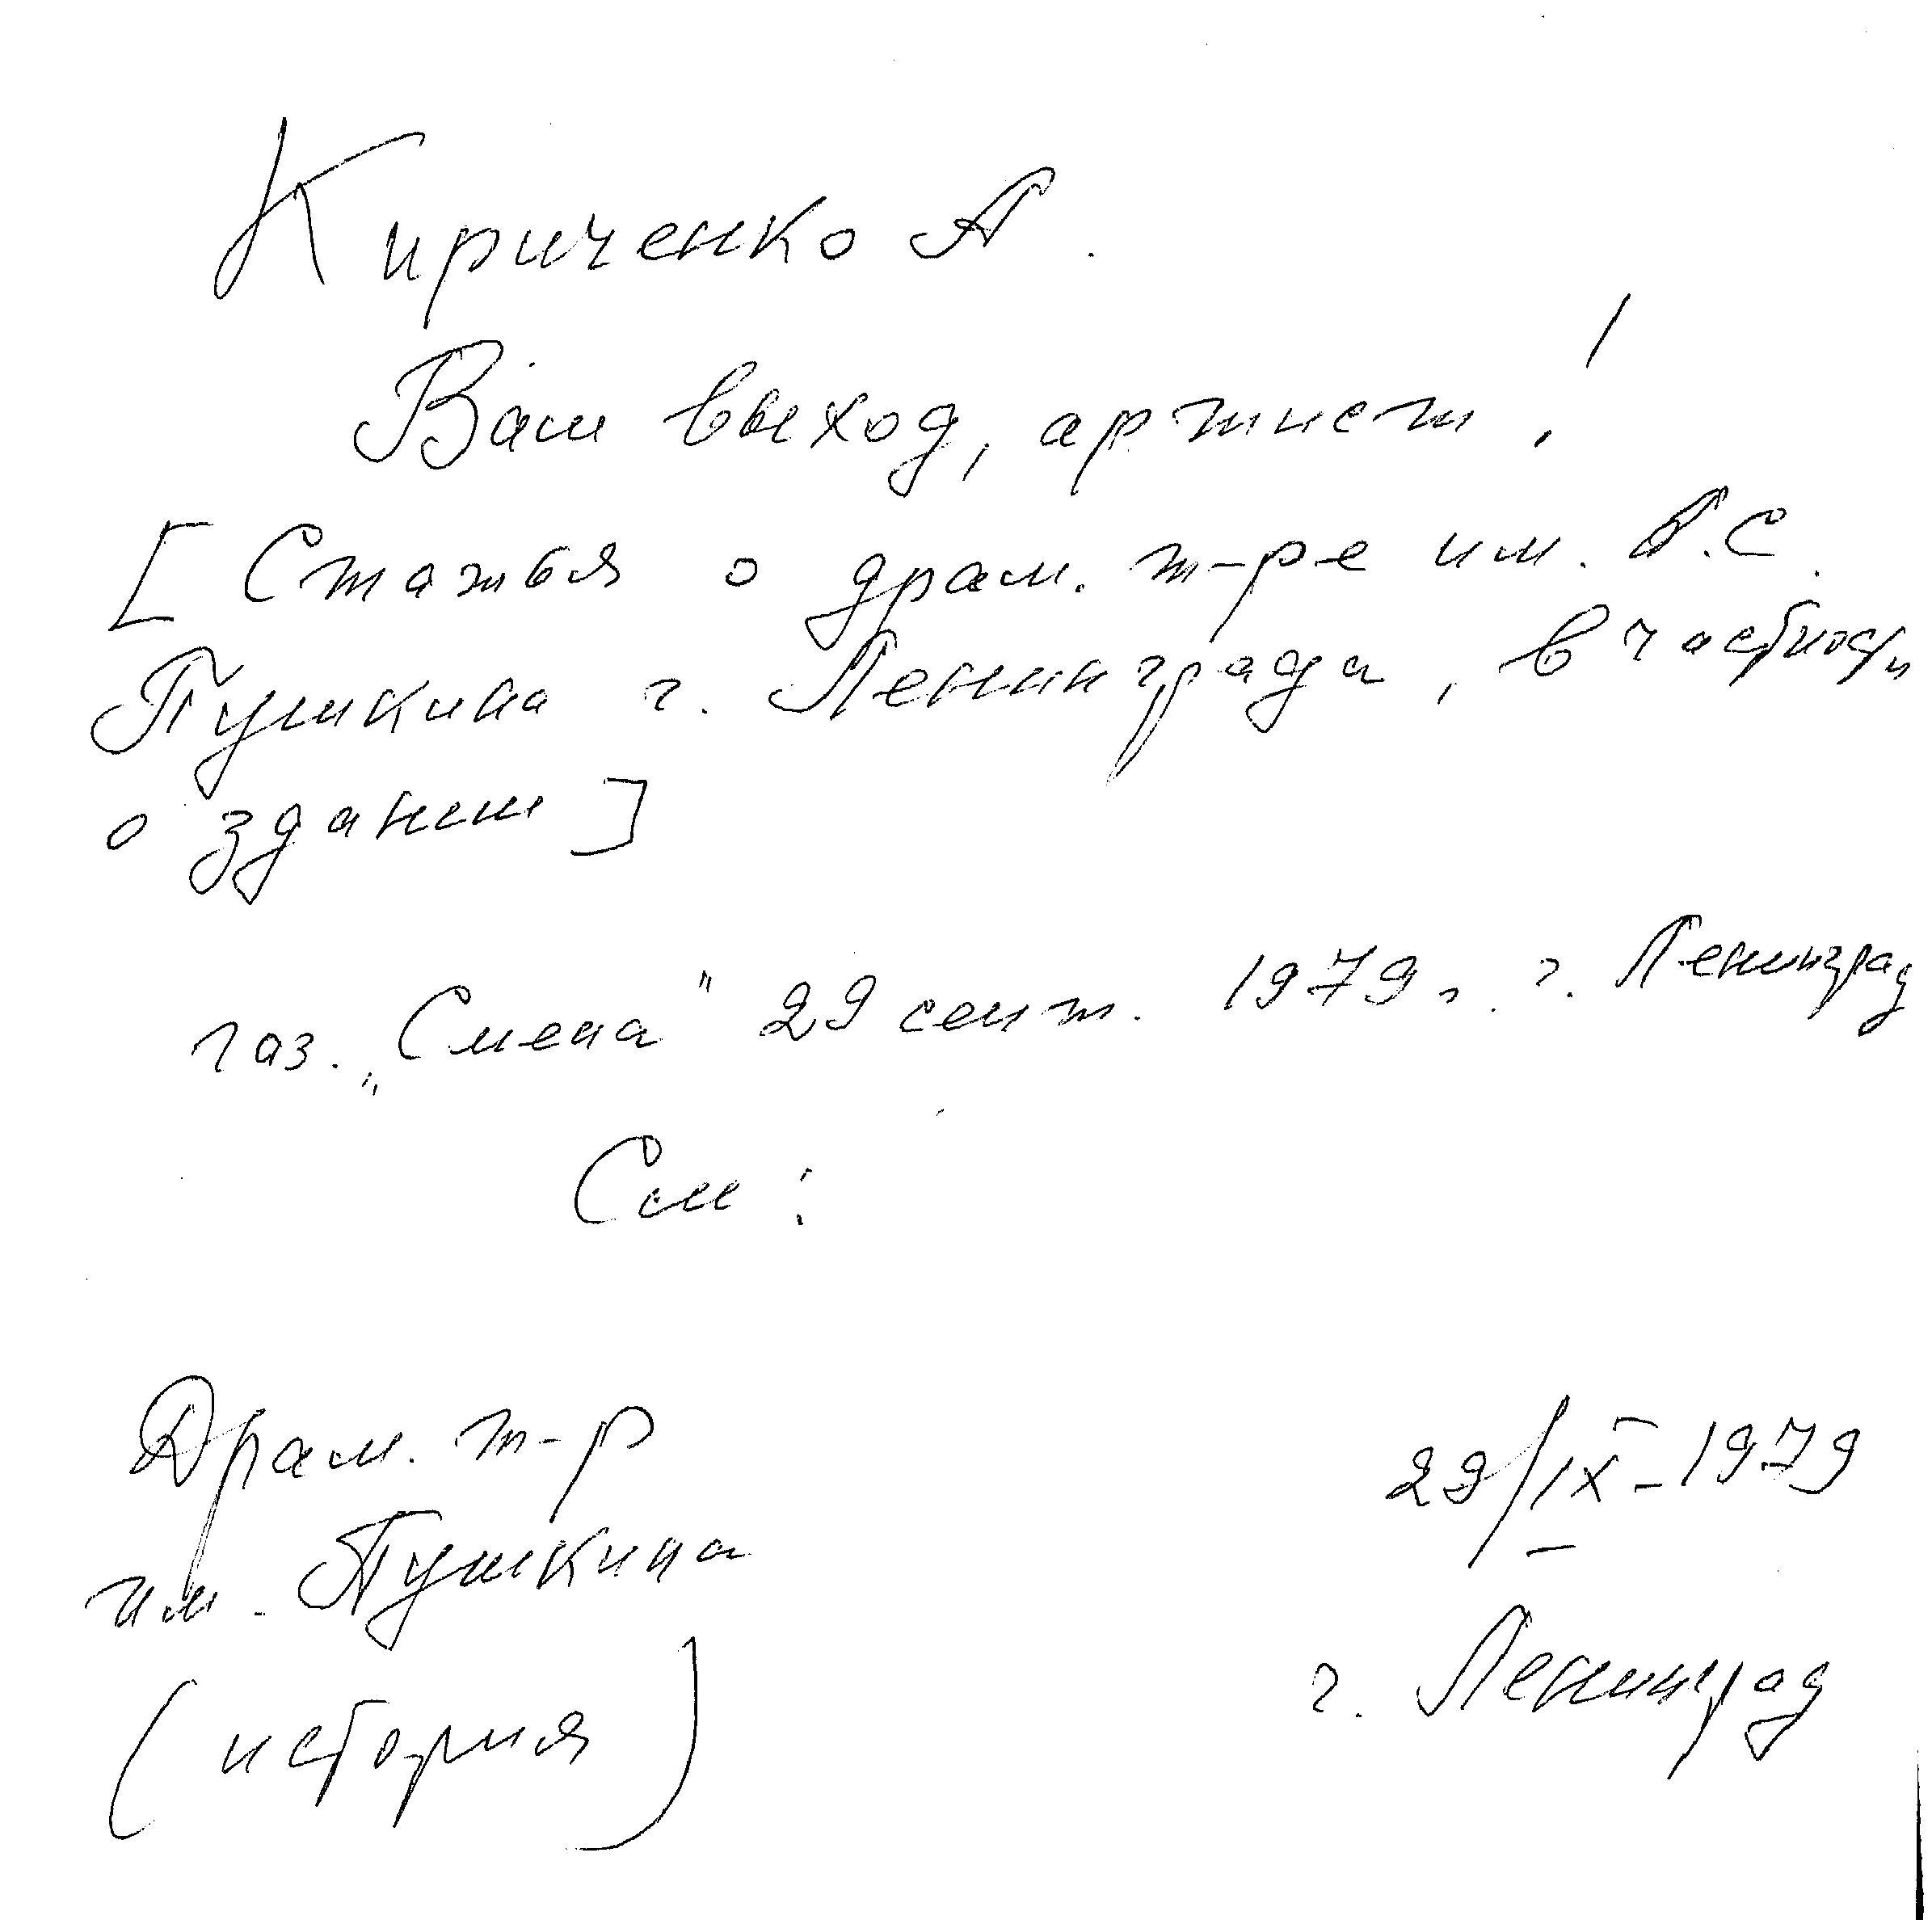 Кириченко А.
Ваш выход, артист!
[Статья о драм. т-ре им. А.С.
Пушкина г. Ленинграда, в частности
о здании]
газ. „Смена" 29 сент. 1979г. г. Ленинград
См:
Драм. т-р
им. Пушкина
(история)
29/IX-1979
г. Ленинград